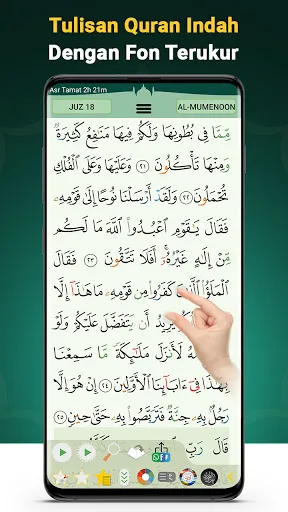 Tulisan Quran Indah
Dengan Fon Terukur
Asr Tamat 2h 21m
JUZ 18
AL-MUMENOON
مِّمَّا فِي بُطُونِهَا وَلَكُمْ فِيهَا مَنَٰفِعُ كَثِيرَةٌ
وَمِنْهَا تَأْكُلُونَ ﴿٢١﴾ وَعَلَيْهَا وَعَلَى ٱلْفُلْكِ
تُحْمَلُونَ ﴿٢٢﴾ وَلَقَدْ أَرْسَلْنَا نُوحًا إِلَىٰ قَوْمِهِۦ
فَقَالَ يَٰقَوْمِ ٱعْبُدُوا۟ ٱللَّهَ مَا لَكُم
مِّنْ إِلَٰهٍ غَيْرُهُۥٓ ۖ أَفَلَا تَتَّقُونَ ﴿٢٣﴾ فَقَالَ
ٱلْمَلَؤُا۟ ٱلَّذِينَ كَفَرُوا۟ مِن قَوْمِهِۦ مَا هَٰذَآ إِلَّا
يُرِيدُ أَن يَتَفَضَّلَ عَلَيْكُمْ وَلَوْ
لَأَنزَلَ مَلَٰٓئِكَةً مَّا سَمِعْنَا
بِهَٰذَا فِيٓ ءَابَآئِنَا ٱلْأَوَّلِينَ ﴿٢٤﴾ إِنْ هُوَ إِلَّا
رَجُلٌۢ بِهِۦ جِنَّةٌ فَتَرَبَّصُوا۟ بِهِۦ حَتَّىٰ حِينٍ ﴿٢٥﴾
قَالَ رَبِّ